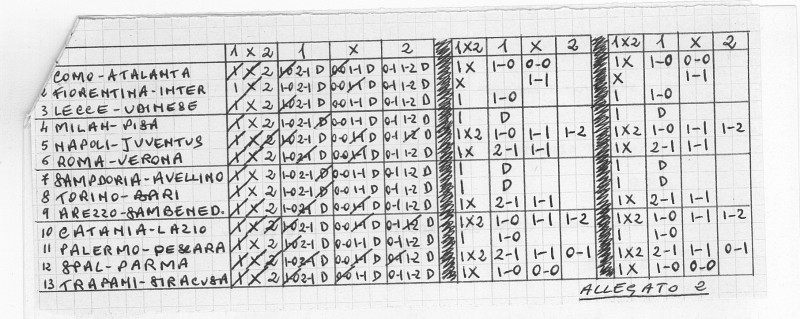 1 X 2 1 X 2 1X2 1 X 2 1X2 1 X 2
COMO-ATALANTA 1 X 2 1-0 2-1 D 0-0 1-1 D 0-1 1-2 D 1X 1-0 0-0 1X 1-0 0-0
2 FIORENTINA-INTER 1 X 2 1-0 2-1 D 0-0 1-1 D 0-1 1-2 D X 1-1 X 1-1
3 LECCE-UDINESE 1 X 2 1-0 2-1 D 0-0 1-1 D 0-1 1-2 D 1 1-0 1 1-0
4 MILAN-PISA 1 X 2 1-0 2-1 D 0-0 1-1 D 0-1 1-2 D 1 D 1 D
5 NAPOLI-JUVENTUS 1 X 2 1-0 2-1 D 0-0 1-1 D 0-1 1-2 D 1X2 1-0 1-1 1-2 1X2 1-0 1-1 1-2
6 ROMA-VERONA 1 X 2 1-0 2-1 D 0-0 1-1 D 0-1 1-2 D 1X 2-1 1-1 1X 2-1 1-1
7 SAMPDORIA-AVELLINO 1 X 2 1-0 2-1 D 0-0 1-1 D 0-1 1-2 D 1 D 1 D
8 TORINO-BARI 1 X 2 1-0 2-1 D 0-0 1-1 D 0-1 1-2 D 1 D 1 D
9 AREZZO-SAMBENED. 1 X 2 1-0 2-1 D 0-0 1-1 D 0-1 1-2 D 1X 2-1 1-1 1X 2-1 1-1
10 CATANIA-LAZIO 1 X 2 1-0 2-1 D 0-0 1-1 D 0-1 1-2 D 1X2 1-0 1-1 1-2 1X2 1-0 1-1 1-2
11 PALERMO-PESCARA 1 X 2 1-0 2-1 D 0-0 1-1 D 0-1 1-2 D 1 1-0 1 1-0
12 SPAL-PARMA 1 X 2 1-0 2-1 D 0-0 1-1 D 0-1 1-2 D 1X2 2-1 1-1 0-1 1X2 2-1 1-1 0-1
13 TRAPANI-SIRACUSA 1 X 2 1-0 2-1 D 0-0 1-1 D 0-1 1-2 D 1X 1-0 0-0 1X 1-0 0-0
ALLEGATO 2